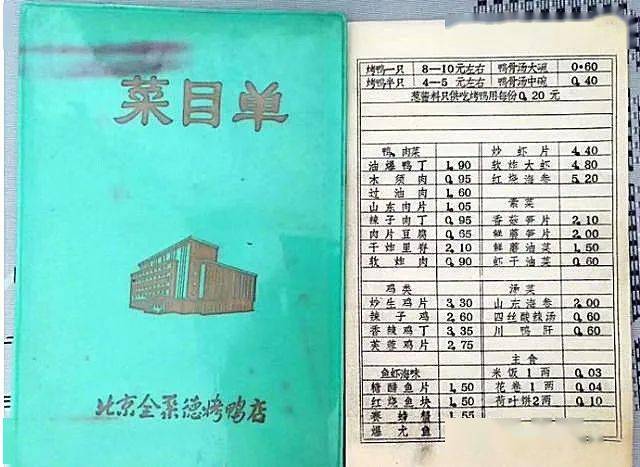 菜目单
北京全聚德烤鸭店
烤鸭一只 8—10元左右 鸭骨汤大碗 0.60
烤鸭半只 4—5元左右 鸭骨汤中碗 0.40
葱酱料只供吃烤鸭用每份0.20元
鸭,肉菜
油爆鸭丁 1.90
木须肉 0.95
过油肉 1.60
山东肉片 1.05
辣子肉丁 0.95
肉片豆腐 0.65
干炸里脊 2.10
软炸肉 0.90
鸡类
炒生鸡片 3.30
辣子鸡 2.60
香辣鸡丁 3.35
芙蓉鸡片 2.75
鱼虾海味
糖醋鱼片 1.50
红烧鱼块 1.50
赛螃蟹 1.55
爆尤鱼
炒虾片 4.40
软炸大虾 4.80
红烧海参 5.20
素菜
香菇笋片 2.10
鲜蘑笋片 2.00
鲜蘑油菜 1.50
虾干油菜 0.60
汤菜
山东海参 2.00
四丝酸辣汤 0.60
川鸭肝 0.60
主食
米饭1两 0.03
花卷1两 0.04
荷叶饼2两 0.10